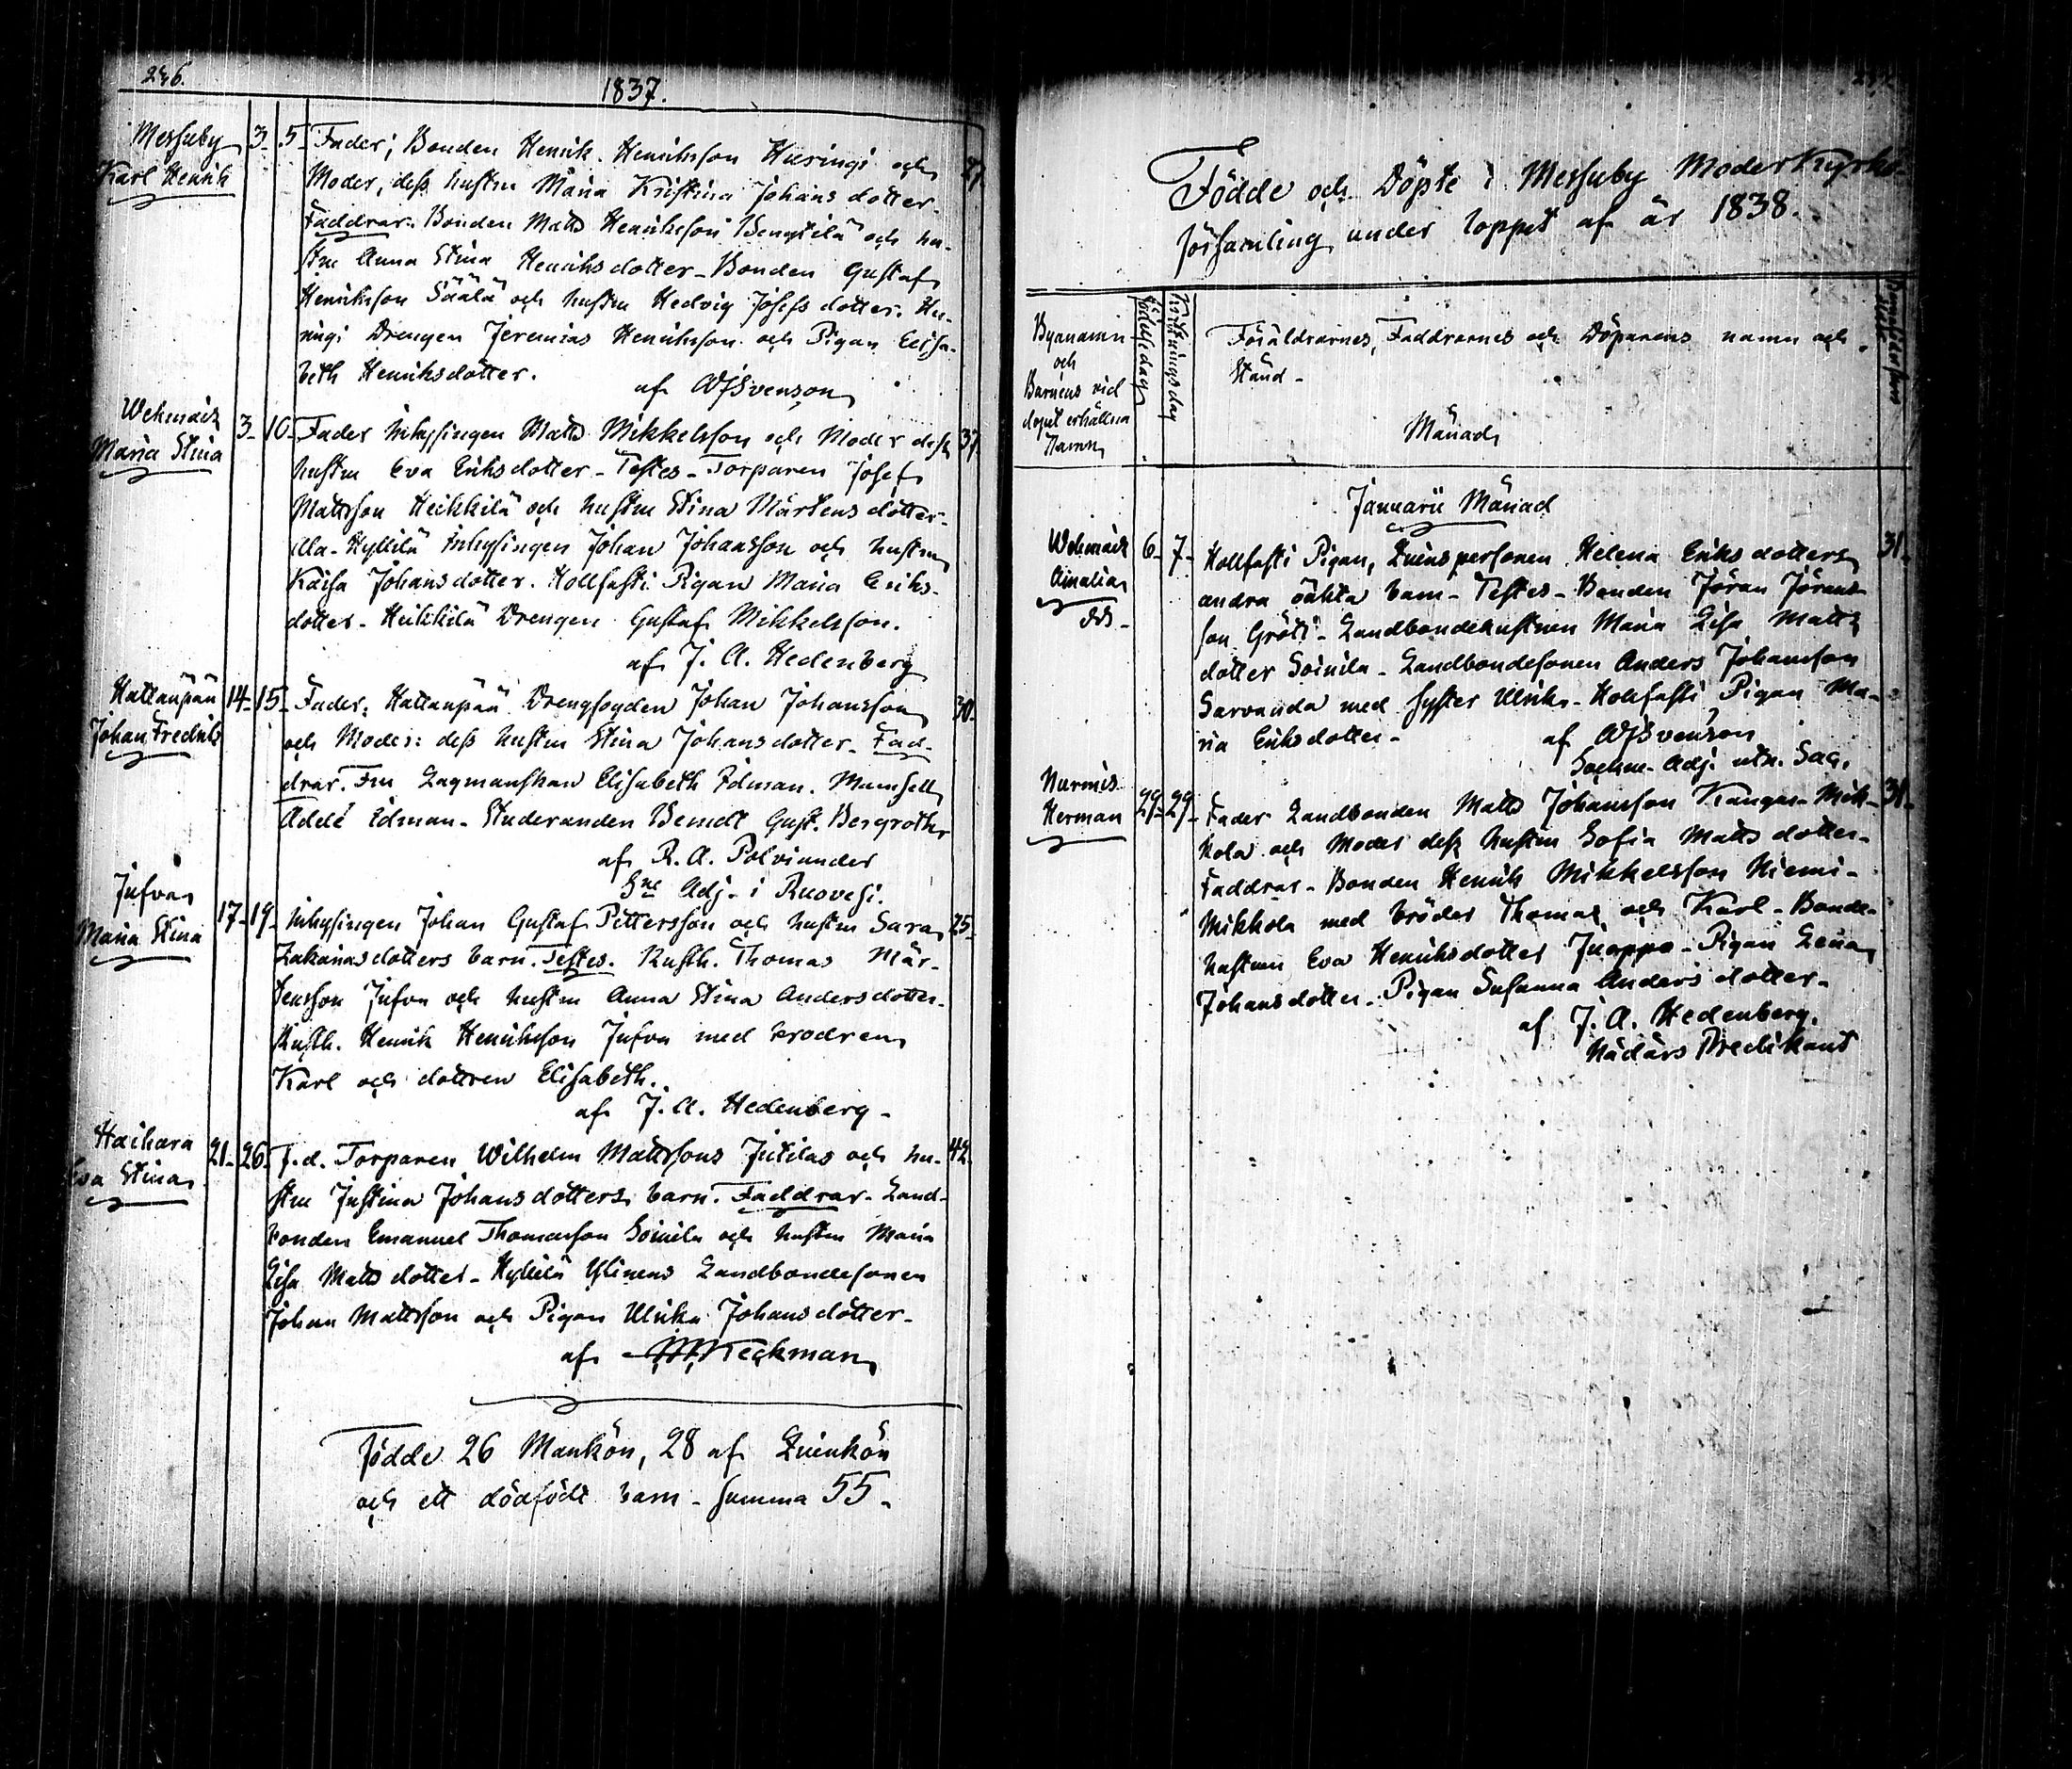 246.
1837.
Messuby 3 5 Fader; Bonden Henrik Henriksson Husingi och 27.
Karl Henrik Moder, dess hustru Maria Kristina Johansdotter.
Faddrar. Bonden Matts Henriksson Bengtilä och hu-
stru Anna Stina Henriksdotter - Bonden Gustaf
Henriksson Säälä och hustru Hedvig Josefsdotter. Hu-
singi Drengen Jeremias Henriksson och Pigan Elisa-
beth Henriksdotter.
af Svenson
Wehmais 3 10 Fader Inhysingen Matts Mikkelsson och Moder dess 37
Maria Stina hustru Eva Eriksdotter - Testes - Torparen Josef
Mattsson Heikkilä och hustru Stina Mårtensdotter.
Ala-Hyllilä Inhysingen Johan Johansson och hustru
Kaisa Johansdotter. Hollfasti Pigan Maria Eriks-
dotter - Heikkilä Drengen Gustaf Mikkelsson.
af J. A. Hedenberg
Hattanpää 14 15 Fader: Hattanpää Drengfogden Johan Johansson 30
Johan Fredrik och Moder: dess hustru Stina Johansdotter - Fad-
drar. Fru Lagmanskan Elisabeth Idman. Mamsell
Addé Idman - Studeranden Berndt Gust. Bergroth
af R. A. Polviander
Sne Adj. i Ruovesi.
Jufva 17 19 Inhysingen Johan Gustaf Pettersson och hustru Sara 25
Maria Stina Zakariasdotters barn. Testes. Rusth. Thomas Mår-
tensson Jufva och hustru Anna Stina Andersdotter.
Rusth. Henrik Henriksson Jufva med brodren
Karl och dottren Elisabeth.
af J. A. Hedenberg -
Haihara 21 26 F.d. Torparen Wilhelm Mattssons Jutilas och hu- 42
Eva Stina stru Justina Johansdotters barn. Faddrar - Land-
bonden Emanuel Thomasson Soinila och hustru Maria
Lisa Mattsdotter - Hyllilä Ylinens Landbondesonen
Johan Mattsson och Pigan Ulrika Johansdotter -
af Teckman
Födde 26 Mankön, 28 af Quinkön
och ett dödfödt barn - summa 55 -
Födde och Döpte i Messuby Moderkyrko-
församling under loppet af år 1838.
Bynamn
och
Barnens vid
dopet erhållna
Namn
Födelsedag
Kristningsdag
Föräldrarnes, Faddrarnes och Döparens namn och
Stånd -
Månad
Januarii Månad
Wehmais 6 7 Hollfasti Pigan, Quinspersonen Helena Eriksdotters 31
Amalia andra oäkta barn - Testes - Bonden Jöran Jörans-
son Grötti - Landbondehustrun Maria Lisa Matts
dotter Soinila - Landbondesonen Anders Johansson
Sarvanda med syster Ulrika - Hollfasti Pigan Ma-
ria Eriksdotter - af Svenson
Sockne-Adj. utn. Sac.
Nurmis 29 29 Fader Landbonden Matts Johansson Kangas-Mik- 31
Herman kola och Moder dess hustru Sofia Mattsdotter -
Faddrar - Bonden Henrik Mikkelsson Niemi-
Mikkola med bröder Thomas och Karl - Bonde-
hustrun Eva Henriksdotter Juoppo - Pigan Lena
Johansdotter - Pigan Susanna Andersdotter -
af J. A. Hedenberg.
Nådårs Predikant